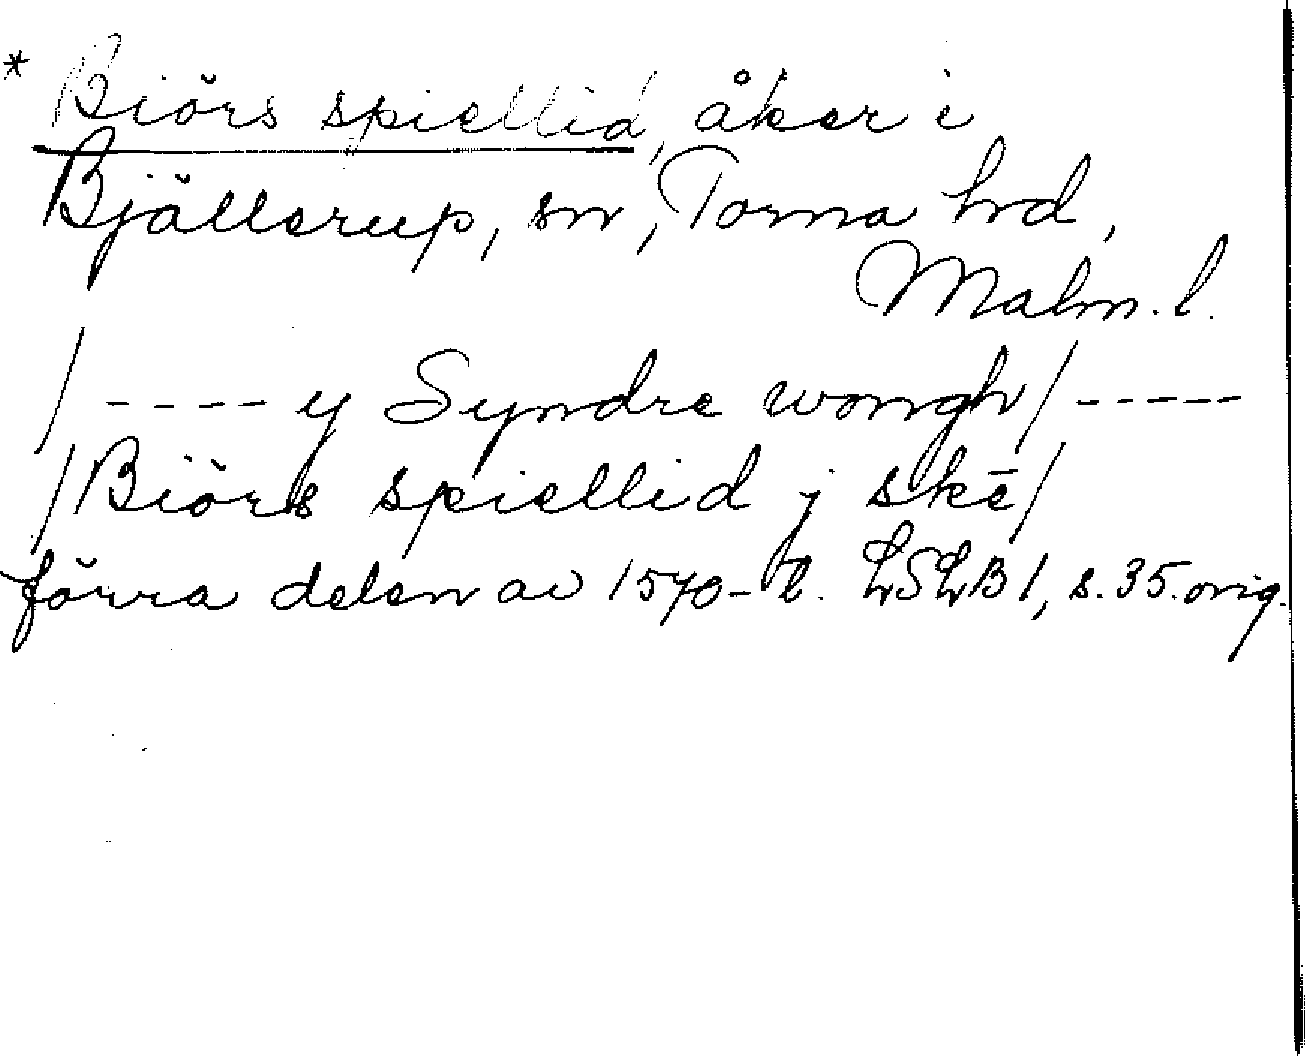 * Biörs spiellid, åker i
Bjällerup, sn, Torna hd,
Malm. l.
/ ---- y Syndre wongh / -----
/ Biörs spiellid j skē /
förra delen av 1570-t. LSLB 1, s. 35. orig.